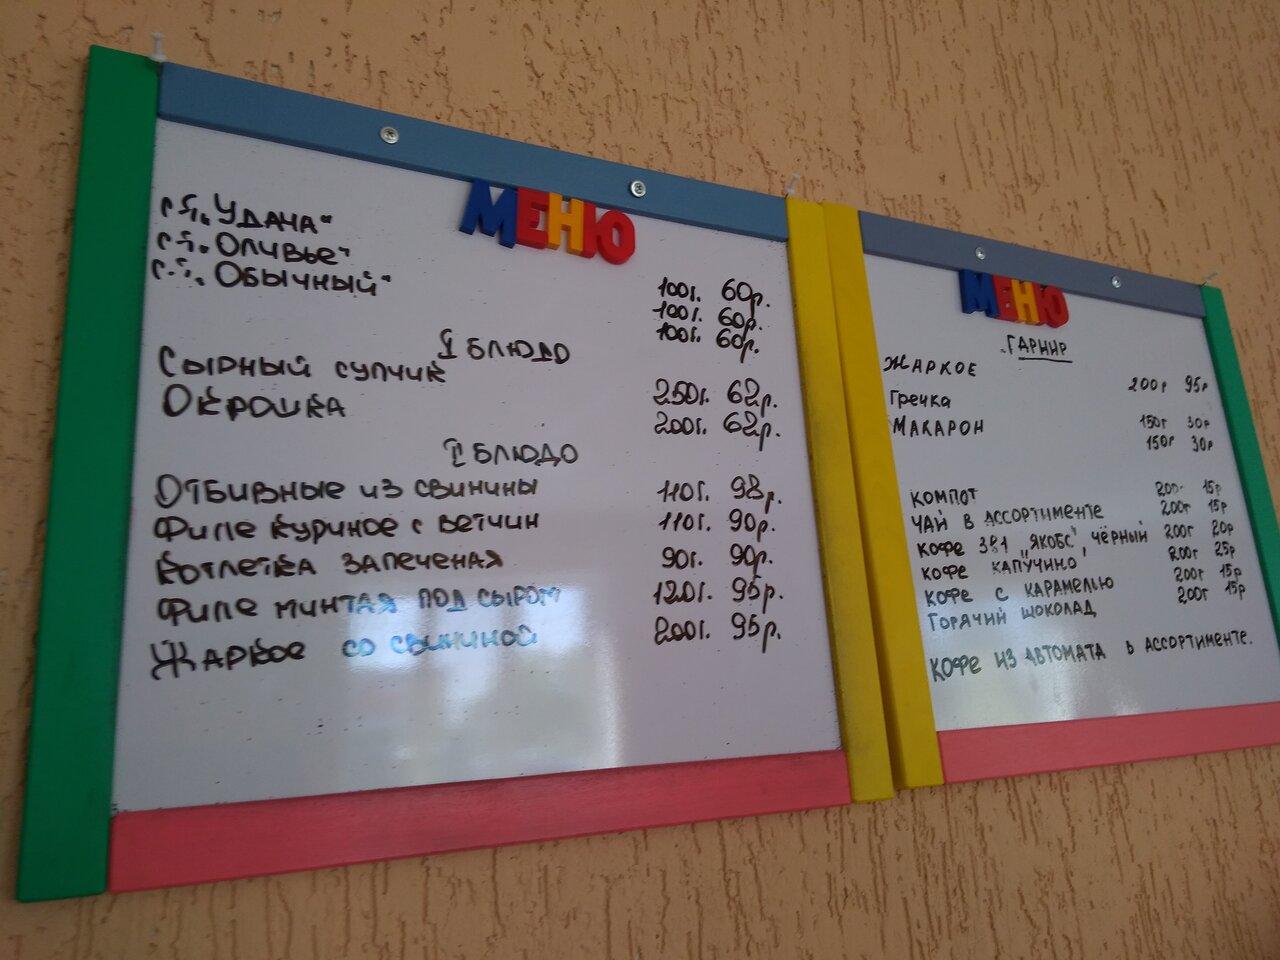 МЕНЮ
„Удача"
„Оливье"
„Обычный"
100г. 60р.
100г. 60р.
100г. 60р.
I блюдо
Сырный супчик 250г. 62р.
Окрошка 200г. 62р.
II блюдо
Отбивные из свинины 110г. 98р.
Филе куриное с ветчин 110г. 90р.
Котлетка запеченая 90г. 90р.
Филе минтая под сыром 120г. 95р.
Жаркое со свининой 200г. 95р.
МЕНЮ
ГАРНИР
ЖАРКОЕ 200г 95р
Гречка 150г 30р
МАКАРОН 150г 30р
КОМПОТ 200г 15р
ЧАЙ В АССОРТИМЕНТЕ 200г 15р
КОФЕ 3в1 „ЯКОБС", ЧЁРНЫЙ 200г 20р
КОФЕ КАПУЧИНО 200г 25р
КОФЕ С КАРАМЕЛЬЮ 200г 15р
ГОРЯЧИЙ ШОКОЛАД 200г 15р
КОФЕ ИЗ АВТОМАТА в АССОРТИМЕНТЕ.